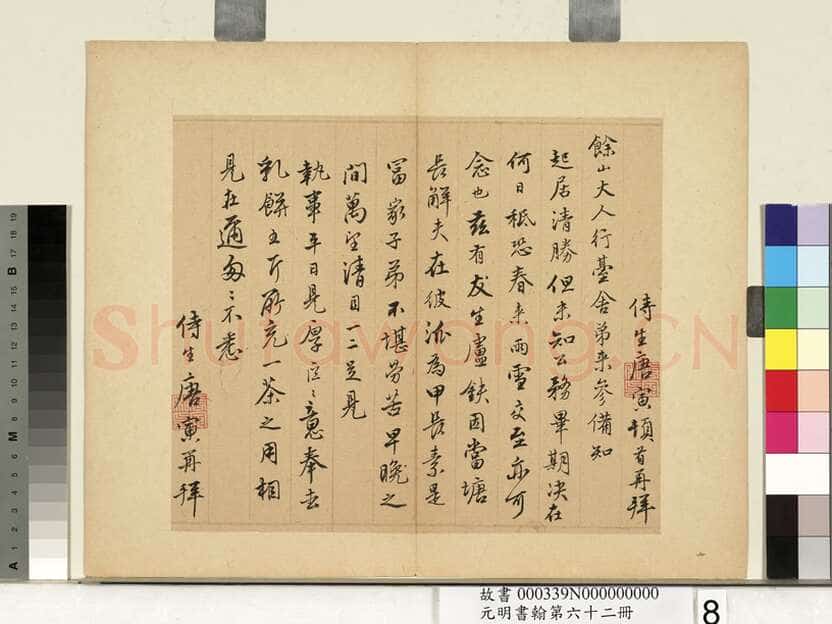 侍生唐寅頓首再拜
餘山大人行臺舍弟來參備知
起居清勝但未知公務畢期决在
何日秪恐春来雨雪交至亦可
念也茲有友生盧鈇因當塘
長解夫在彼派為甲長素是
富家子弟不堪勞苦早晚之
間萬望清目一二足見
執事平日見厚區〻意奉去
乳餅五斤所充一茶之用相
見在邇匆〻不悉
侍生唐寅再拜
Shufawang.CN
故書 000339N000000000
元明書翰第六十二冊
8
A 1 2 3 4 5 6 M 8 9 10 11 12 13 14 15 B 17 18 19